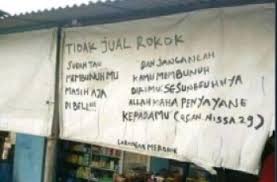 TIDAK JUAL ROKOK
SUDAH TAU
MEMBUNUHMU
MASIH AJA
DIBELI!!!
DAN JANGANLAH
KAMU MEMBUNUH
DIRIMU. SESUNGGUHNYA
ALLAH MAHA PENYAYANG
KEPADAMU (QS.AN.NISSA 29)
LARANGAN MEROKOK